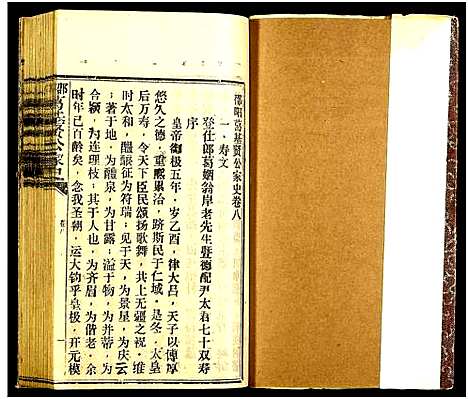 邵阳葛基贤公家史卷八
一·寿文
登仕郎葛姻翁岸老先生暨德配尹太君七十双寿
序
皇帝御极五年，岁乙酉，律大吕，天子以博厚
悠久之德，重熙累洽，跻斯民于仁域，是冬，太皇
后万寿，令天下臣民颂扬歌舞，共上无疆之祝，维
时太和，醲酿征为符瑞；见于天，为景星，为庆云
；著于地，为醴泉，为甘露；溢于物，为并蒂，为
合颖，为连理枝；其于人，为齐眉，为偕老，永
时年已百龄矣，念我圣朝，运大钧乎皇极，开元模
卷八
一